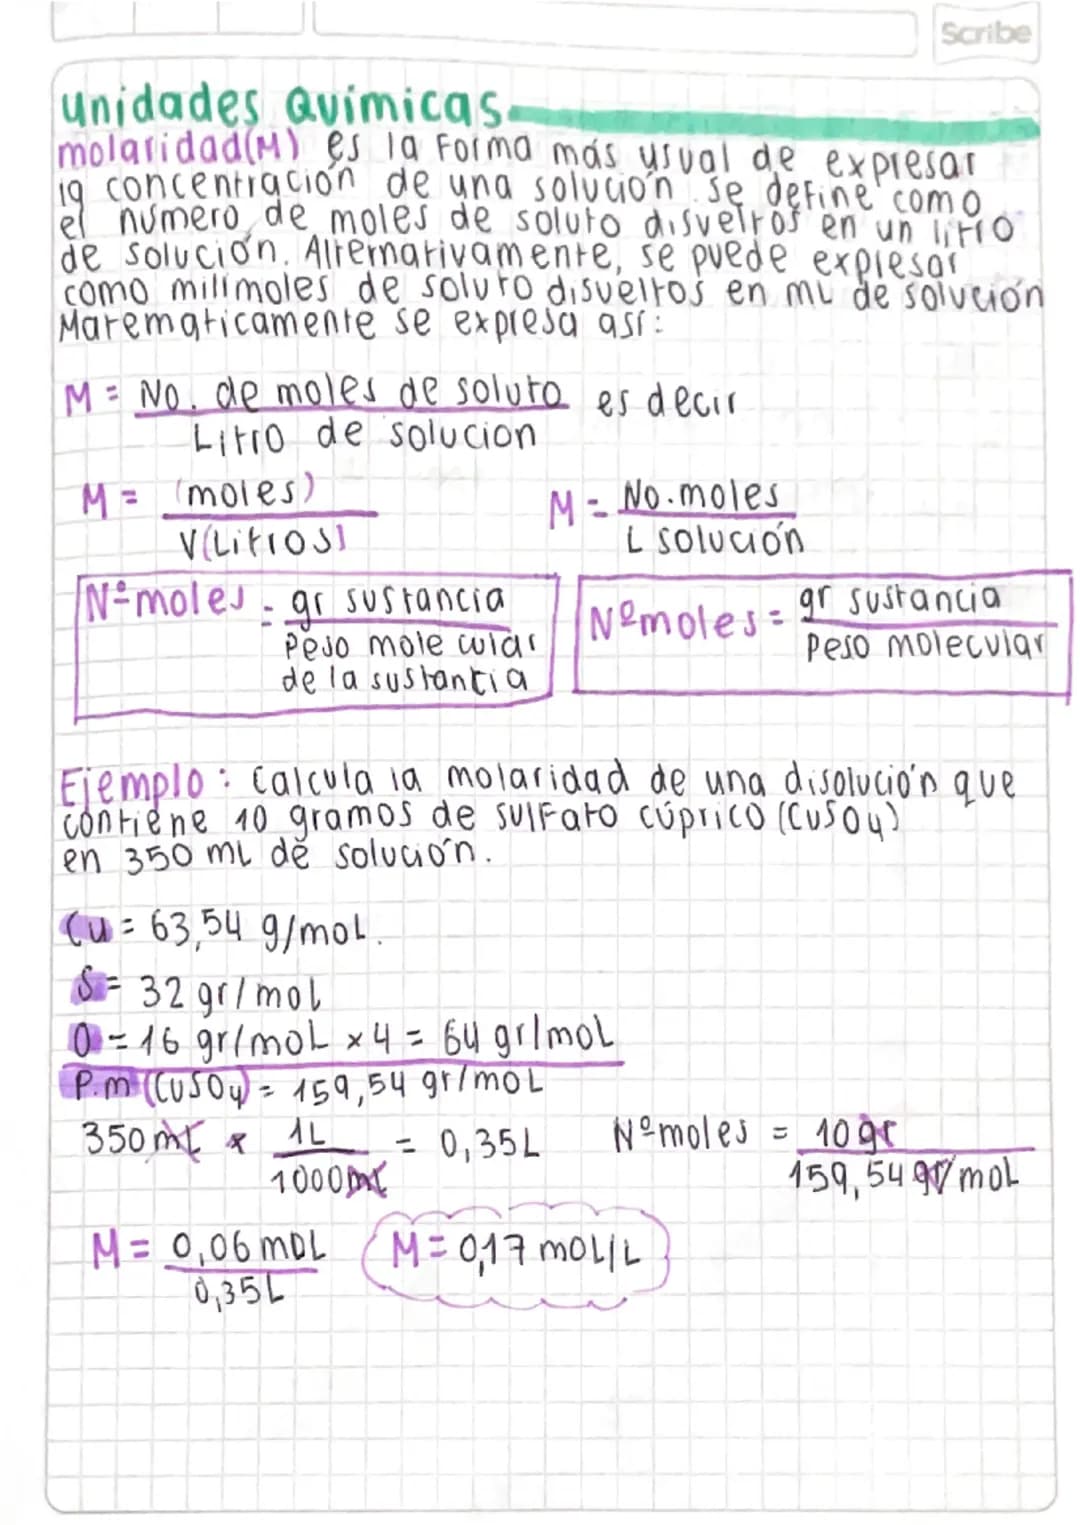 Scribe
Unidades Químicas
molaridad(M) es la Forma más usual de expresar
la concentración de una solución. se define como
el número de moles de soluto disueltos en un litro
de solución. Alternativamente, se puede expresar
como milimoles de soluto disueltos en mL de solución
Matematicamente se expresa así:
M = No. de moles de soluto es decir
Litro de solucion
M = (moles) M = No. moles
V(Litros) L solución
Nº moles = gr sustancia Nº moles = gr sustancia
Peso molecular Peso molecular
de la sustancia
Ejemplo: Calcula la molaridad de una disolución que
contiene 10 gramos de sulfato cúprico (CuSO4)
en 350 mL de solución.
Cu = 63,54 g/mol.
S = 32 gr/mol
O = 16 gr/mol x 4 = 64 gr/mol
P.m (CuSO4) = 159,54 gr/mol
350 mL x 1L = 0,35L Nº moles = 10 gr
1000mL 159,54 gr/mol
M = 0,06 mol M = 0,17 mol/L
0,35L